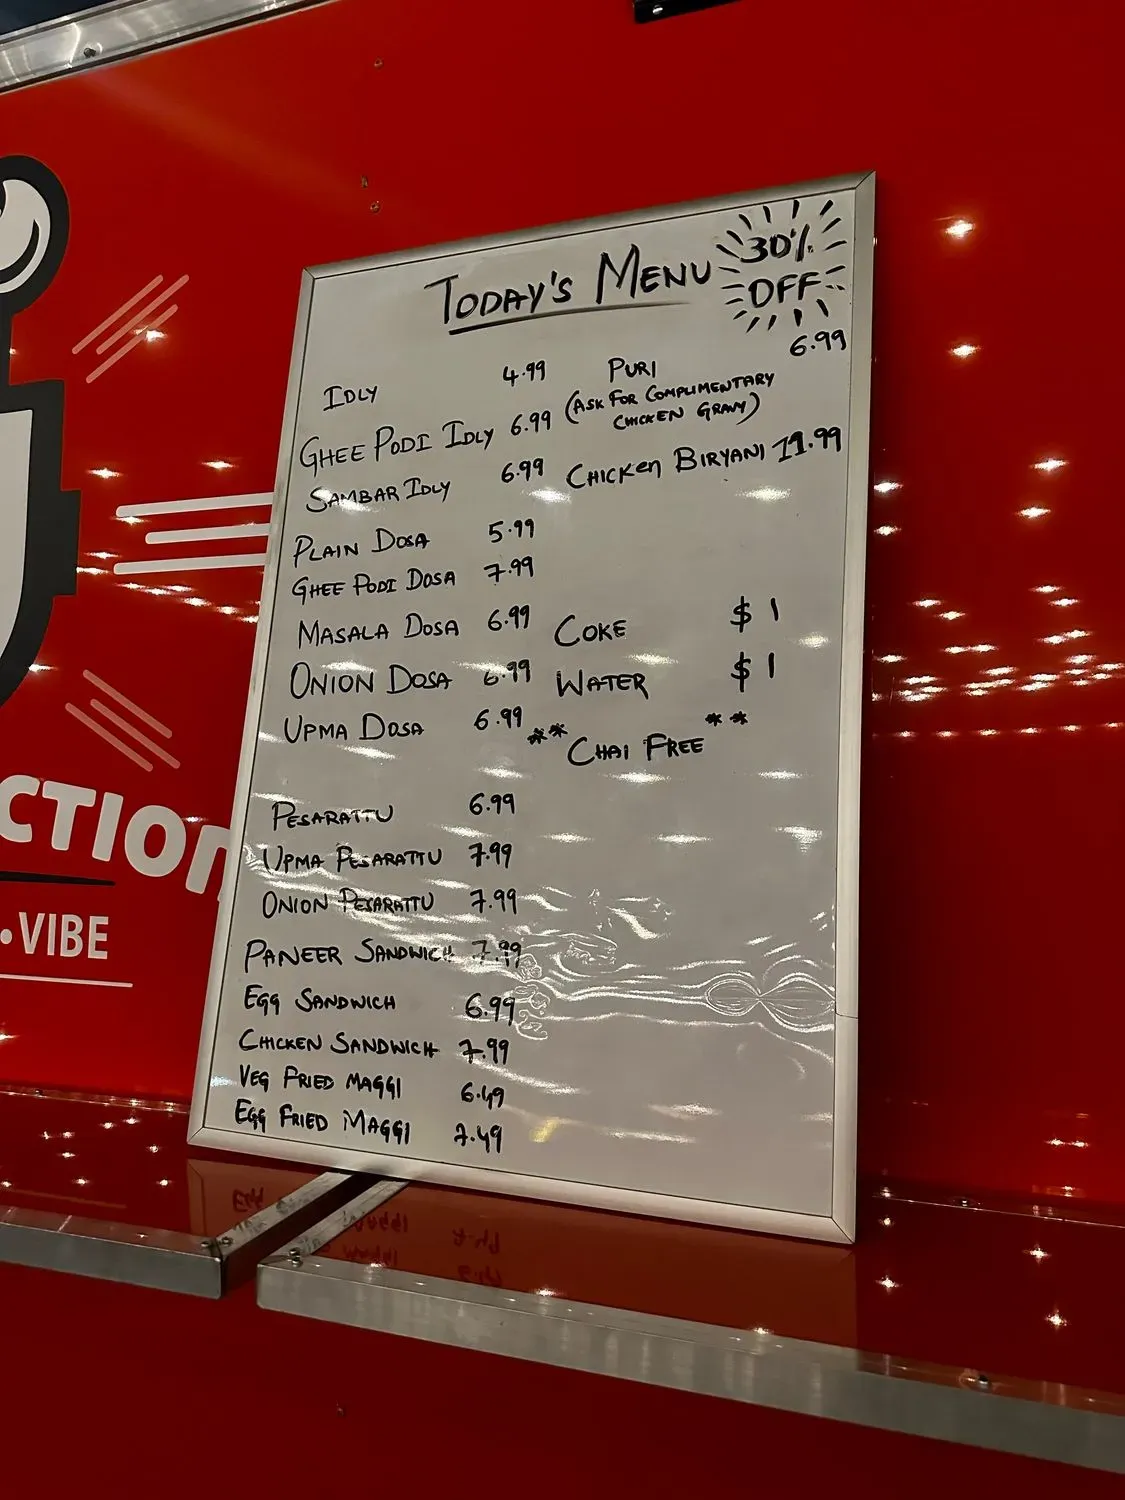 TODAY'S MENU
30% OFF
IDLY 4.99
GHEE PODI IDLY 6.99
SAMBAR IDLY 6.99
PLAIN DOSA 5.99
GHEE PODI DOSA 7.99
MASALA DOSA 6.99
ONION DOSA 6.99
UPMA DOSA 6.99
PESARATTU 6.99
UPMA PESARATTU 7.99
ONION PESARATTU 7.99
PANEER SANDWICH 7.99
EGG SANDWICH 6.99
CHICKEN SANDWICH 7.99
VEG FRIED MAGGI 6.49
EGG FRIED MAGGI 7.49
PURI 6.99
(ASK FOR COMPLIMENTARY
CHICKEN GRAVY)
CHICKEN BIRYANI 11.99
COKE $1
WATER $1
** CHAI FREE **
CTION
•VIBE